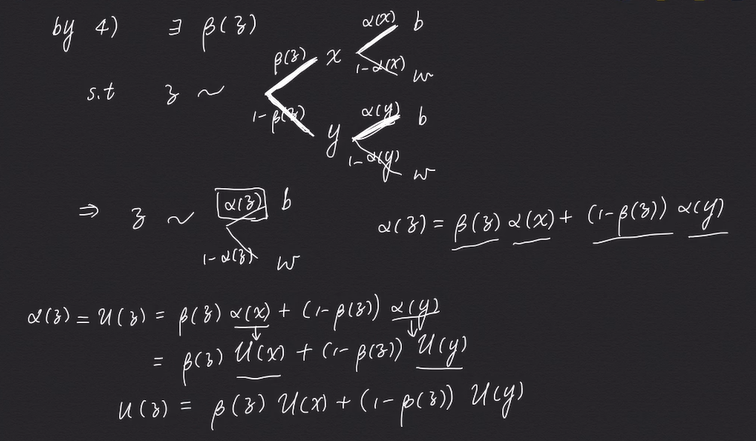 by 4) ∃ β(z)
α(x) b
β(z) x
1-α(x) w
s.t z ~
1-β(z) α(y) b
y
1-α(y) w
⇒ z ~ α(z) b
1-α(z) w
α(z) = β(z) α(x) + (1-β(z)) α(y)
α(z) = U(z) = β(z) α(x) + (1-β(z)) α(y)
= β(z) U(x) + (1-β(z)) U(y)
U(z) = β(z) U(x) + (1-β(z)) U(y)